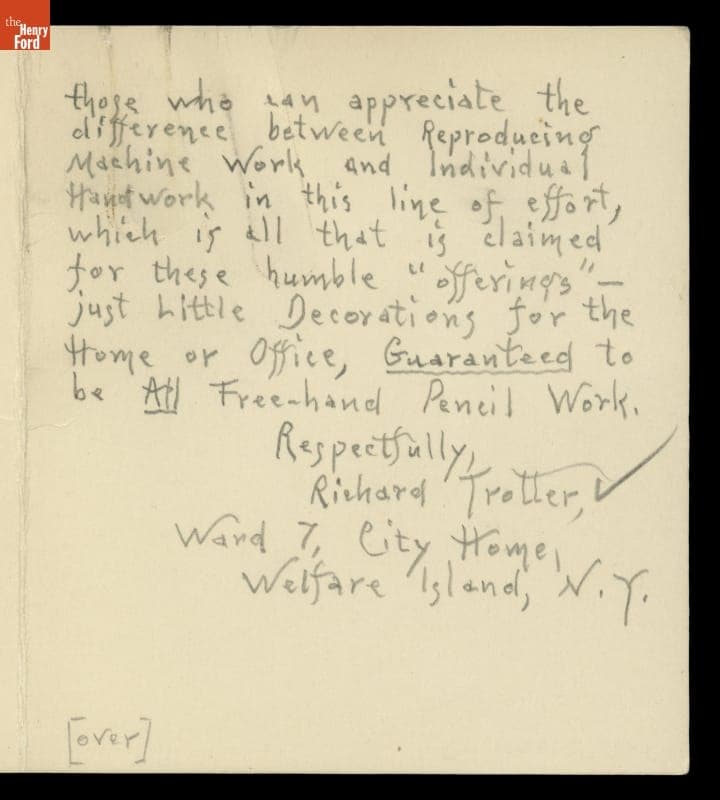 the
Henry
Ford
those who can appreciate the
difference between Reproducing
Machine Work and Individual
Handwork in this line of effort,
which is all that is claimed
for these humble "offerings"—
just Little Decorations for the
Home or Office, Guaranteed to
be All Free-hand Pencil Work.
Respectfully,
Richard Trotter,
Ward 7, City Home,
Welfare Island, N.Y.
[over]